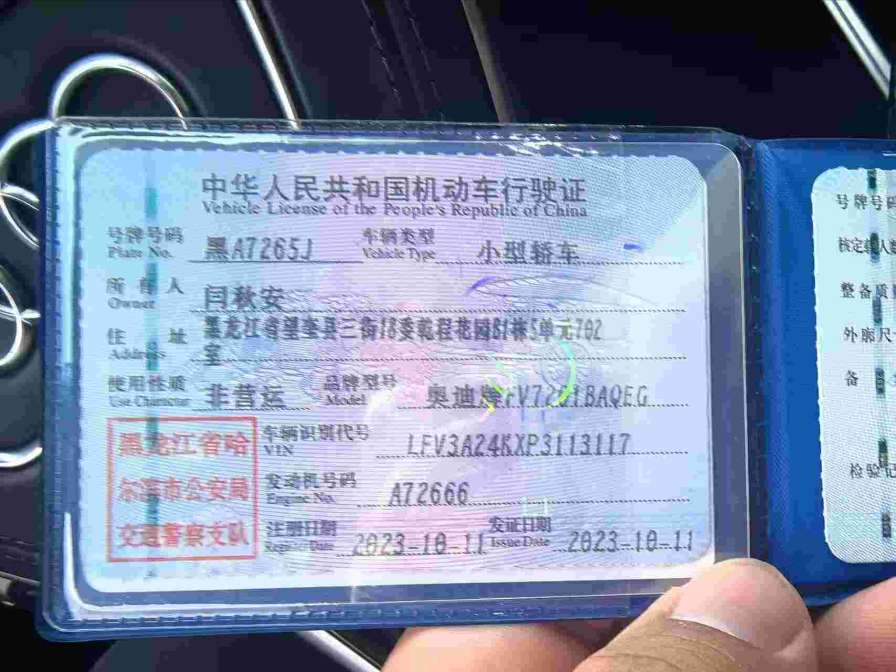 中华人民共和国机动车行驶证
Vehicle License of the People's Republic of China
号牌号码 黑A7265J 车辆类型 小型轿车
Plate No. Vehicle Type
所有人 闫秋安
Owner
住址 黑龙江省望奎县三街18委乾程花园S1栋5单元702
室
Address
使用性质 非营运 品牌型号 奥迪牌FV7201BAQEG
Use Character Model
黑龙江省哈
尔滨市公安局
交通警察支队
车辆识别代号 LFV3A24KXP3113117
VIN
发动机号码 A72666
Engine No.
注册日期 2023-10-11 发证日期 2023-10-11
Register Date Issue Date
号牌号码
核定载人数
整备质
外廓尺
备
检验记